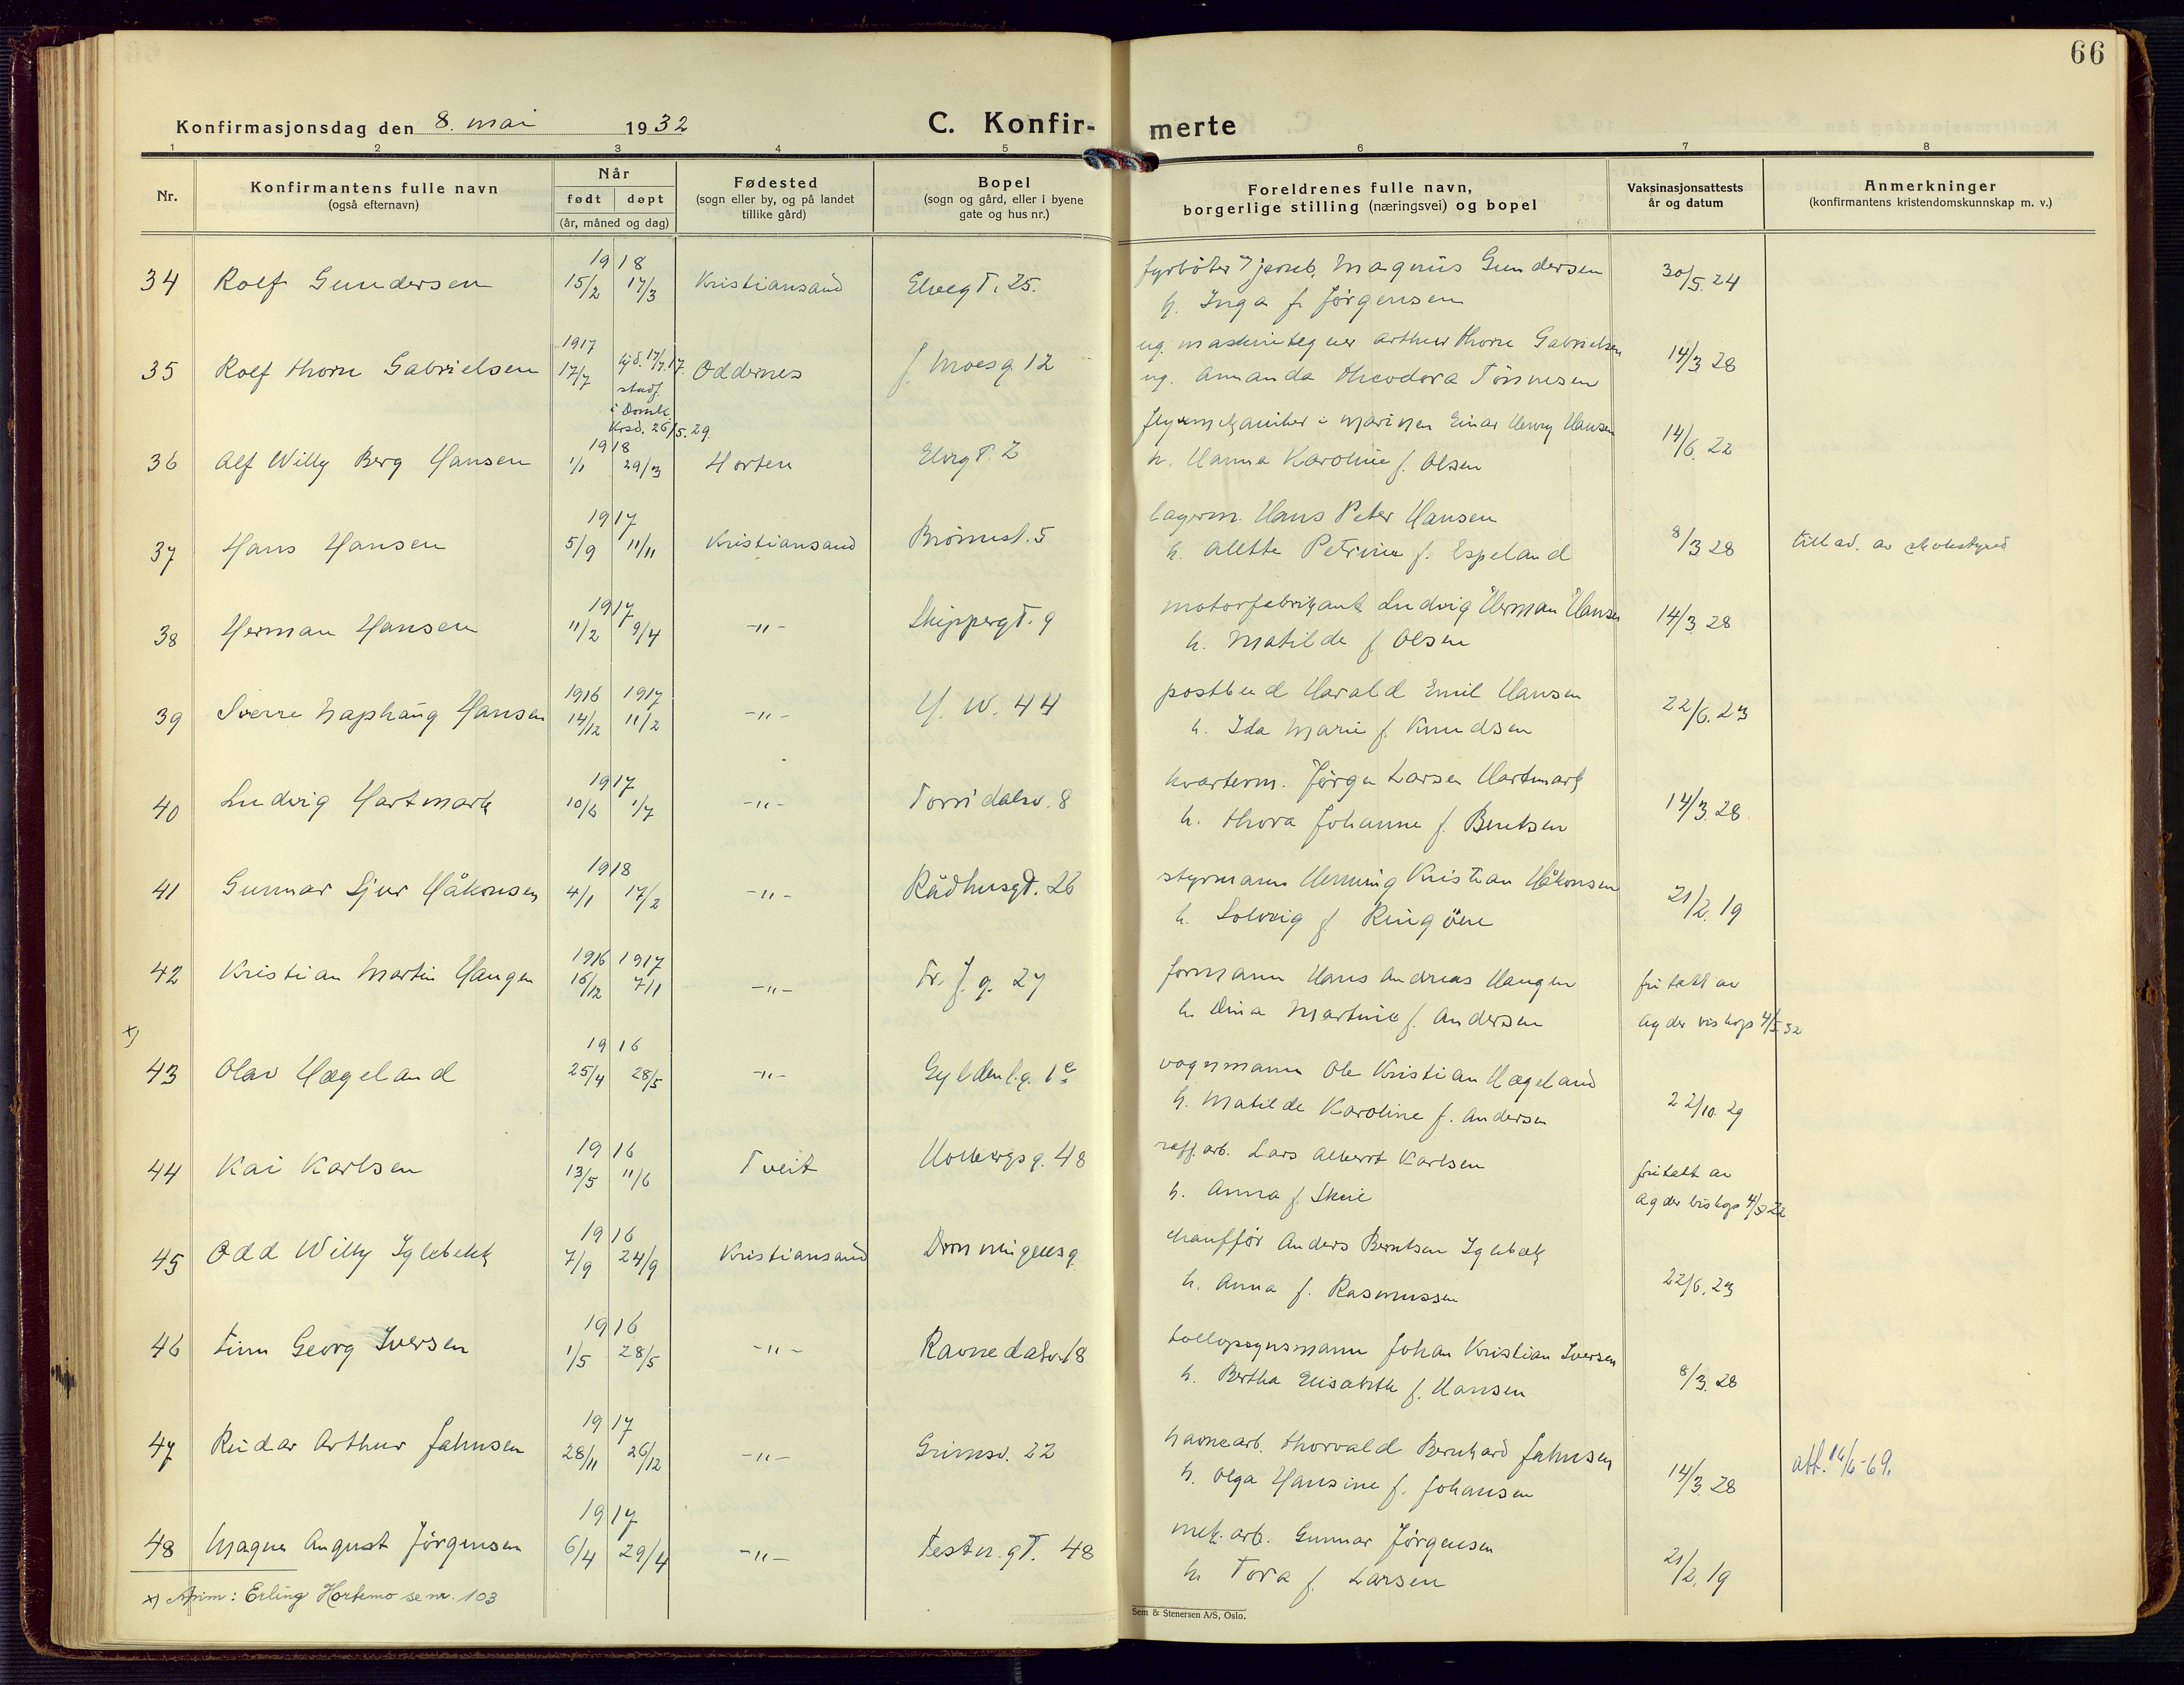 66
Konfirmasjonsdag den 8. mai 1932
C. Konfir- merte
1 2 3 4 5 6 7 8
Nr.
Konfirmantens fulle navn
(også efternavn)
Når
født døpt
(år, måned og dag)
Fødested
(sogn eller by, og på landet
tillike gård)
Bopel
(sogn og gård, eller i byene
gate og hus nr.)
Foreldrenes fulle navn,
borgerlige stilling (næringsvei) og bopel
Vaksinasjonsattests
år og datum
Anmerkninger
(konfirmantens kristendomskunnskap m. v.)
1918
34 Rolf Gundersen 15/2 17/3 Kristiansand Elvegt. 25. fyrbøter Magnus Gundersen 30/5. 24
h. Inga f. Jörgensen
1917
35 Rolf Thorn Gabrielsen 17/7 hjd. 17/7.17. Oddernes J. Moesg 12 ug. maskintegner Arthur Thorn Gabrielsen 14/3 28
stadf. ug. Amanda Theodora Tönnesen
i Domk.
Krsd. 26/5.29.
1918
36 Alf Willy Berg Hansen 1/1 29/3 Horten Elvegt. 2 flyvemekaniker i marinen Einar Henry Hansen 14/6. 22
h. Hanna Karoline f. Olsen
1917
37 Hans Hansen 5/9 11/11 Kristiansand Brönnst. 5 lagerm. Hans Peter Hansen 8/3 28 tillad. av skolestyret
h. Alette Petrine f. Espeland
1917
38 Herman Hansen 11/2 9/4 -"- Skippergt. 9 motorfabrikant Ludvig Herman Hansen 14/3 28
h. Matilde f. Olsen
1916 1917
39 Sverre Haphaug Hansen 14/12 11/2 -"- H. W. 44 postbud Harald Emil Hansen 22/6. 23
h. Ida Marie f. Knudsen
1917
40 Ludvig Hartmark 10/6 1/7 -"- Torridalsv. 8 kvarterm. Jörgen Larsen Hartmark 14/3. 28
h. Thora Johanne f. Bentsen
1918
41 Gunnar Sjur Håkonsen 4/1 17/2 -"- Rådhusgt. 26 styrmann Henning Kristian Håkonsen 21/2. 19
h. Solveig f. Ringöen
1916 1917
42 Kristian Martin Haugen 16/12 7/1 -"- Tr. f. g. 27 formann Hans Andreas Haugen fritatt av
h. Dina Martine f. Andersen Agder biskop 4/5 32
x)
1916
43 Olav Hægeland 25/4 28/5 -"- Gyldenl.g. 1c vognmann Ole Kristian Hægeland 22/10. 29
h. Matilde Karoline f. Andersen
1916
44 Kai Karlsen 13/5 11/6 Tveit Holbergsg. 48 raff.arb. Lars Albert Karlsen fritatt av
h. Anna f. Skeie Agder biskop 4/5 32
1916
45 Odd Willy Iglebekk 7/9 24/9 Kristiansand Dronningensg chaufför Anders Berntsen Iglebæk 22/6. 23
h. Anna f. Rasmussen
1916
46 Finn Georg Iversen 1/5 28/5 -"- Ravnedalsv. 18 tollopsynsmann Johan Kristian Iversen 8/3. 28
h. Bertha Elisabeth f. Hansen
1917
47 Reidar Arthur Jahnsen 28/11 26/12 -"- Grimsv. 22 havnearb. Thorvald Bernhard Jahnsen 14/3. 28 att. 16/6-69.
h. Olga Hansine f. Johansen
1917
48 Magne August Jörgensen 6/4 29/4 -"- Festn.gt. 48 mek. arb. Gunnar Jörgensen 21/2. 19
h. Tora f. Larsen
x) Anm: Erling Hortemo se nr. 103
Sem & Stenersen A/S, Oslo.